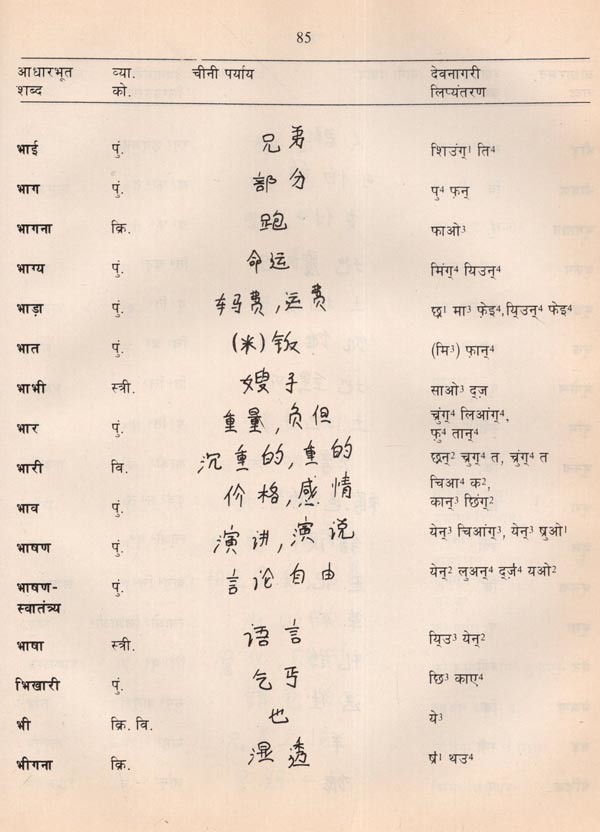 85
आधारभूत शब्द व्या. को. चीनी पर्याय देवनागरी लिप्यंतरण
भाई पुं. 兄弟 शिउंग्¹ ति⁴
भाग पुं. 部分 पु⁴ फ़न्
भागना क्रि. 跑 फाओ³
भाग्य पुं. 命运 मिंग्⁴ यिउन्⁴
भाड़ा पुं. 车马费,运费 छ्र¹ मा³ फ़ेइ⁴,यि्उन्⁴ फेइ⁴
भात पुं. (米)饭 (मि³) फ़ान्⁴
भाभी स्त्री. 嫂子 साओ³ द्ज़
भार पुं. 重量,负但 च्रुंग्⁴ लिआंग्⁴,
फ़ु⁴ तान्⁴
भारी वि. 沉重的,重的 छ्रन्² च्रुग्⁴ त, च्रुंग्⁴ त
भाव पुं. 价格,感情 चिआ⁴ क²,
कान्³ छिंग्²
भाषण पुं. 演讲,演说 येन्³ चिआंग्³, येन्³ ष्रुओ¹
भाषण-
स्वातंत्र्य पुं. 言论自由 येन्² लुअन्⁴ द्ज़⁴ यओ²
भाषा स्त्री. 语言 यि्उ³ येन्²
भिखारी पुं. 乞丐 छि³ काए⁴
भी क्रि. वि. 也 ये³
भीगना क्रि. 湿透 ष्र¹ थउ⁴